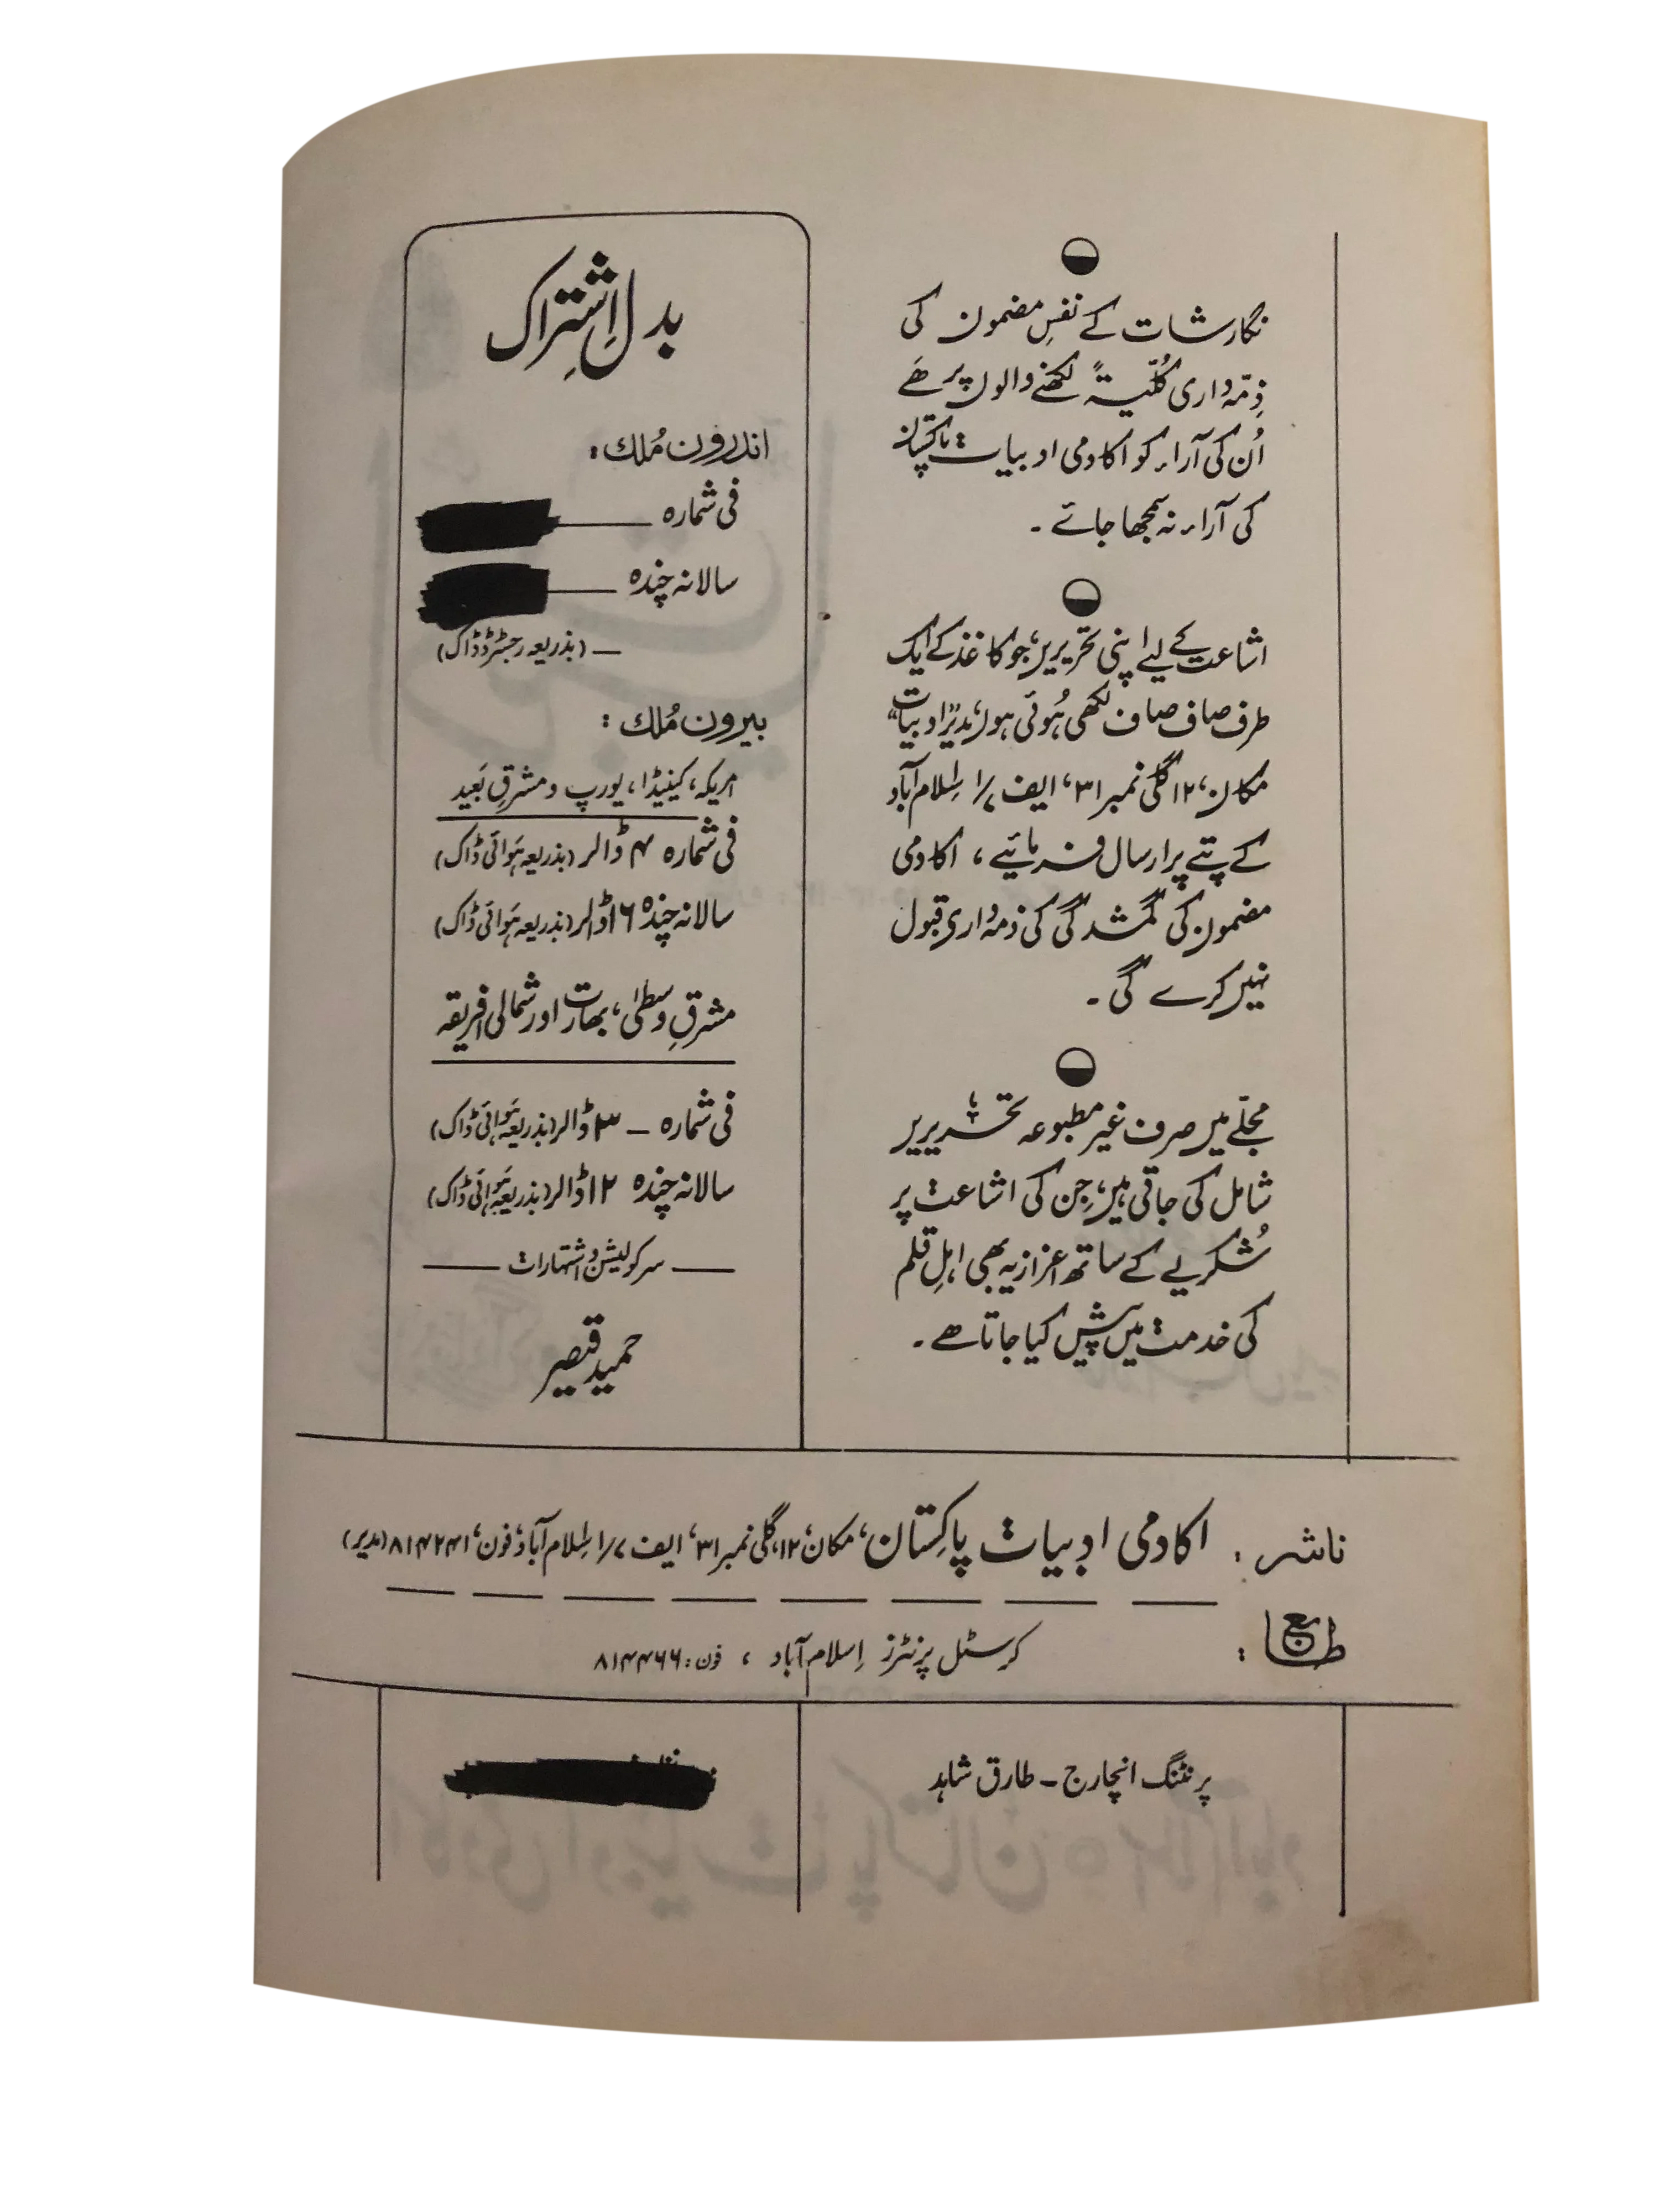 نگارشات کے نفسِ مضمون کی
ذِمّہ داری کُلّیۃً لکھنے والوں پر ھَے
اُن کی آراء کو اکادمی ادبیات پاکستان
کی آراء نہ سمجھا جائے۔
اشاعت کے لیے اپنی تحریریں، جو کاغذ کے ایک
طرف صاف صاف لکھی ہُوئی ہوں، مدیر "ادبیات"
مکان، ۱۲ گلی نمبر ۳۱، ایف ۷/۱ اِسلام آباد
کے پتے پر ارسال فرمائیے، اکادمی
مضمون کی گمشدگی کی ذمہ داری قبول
نہیں کرے گی۔
مجلّے میں صرف غیر مطبوعہ تحریریں
شامل کی جاتی ہیں، جِن کی اشاعت پر
شُکریے کے ساتھ اعزازیہ بھی اہلِ قلم
کی خدمت میں پیش کیا جاتا ھے۔
بدل اِشتِراک
اندرون مُلک:
فی شمارہ
سالانہ چندہ
(بذریعہ رجسٹرڈ ڈاک)
بیرون مُلک:
امریکہ، کینیڈا، یورپ و مشرقِ بَعید
فی شمارہ ۴ ڈالر (بذریعہ ہَوائی ڈاک)
سالانہ چندہ ۱۶ ڈالر (بذریعہ ہَوائی ڈاک)
مشرقِ وسطیٰ، بھارت اور شمالی افریقہ
فی شمارہ – ۳ ڈالر (بذریعہ ہَوائی ڈاک)
سالانہ چندہ ۱۲ ڈالر (بذریعہ ہَوائی ڈاک)
سرکولیشن و اشتہارات
حمید قیصر
ناشر: اکادمی ادبیات پاکِستان، مکان، ۱۲، گلی نمبر ۳۱، ایف ۷/۱ اِسلام آباد، فون، ۸۱۴۲۴۱ (مدیر)
طابع: کرسٹل پرنٹرز اِسلام آباد، فون: ۸۱۴۴۶۶
پرنٹنگ انچارج – طارق شاہد